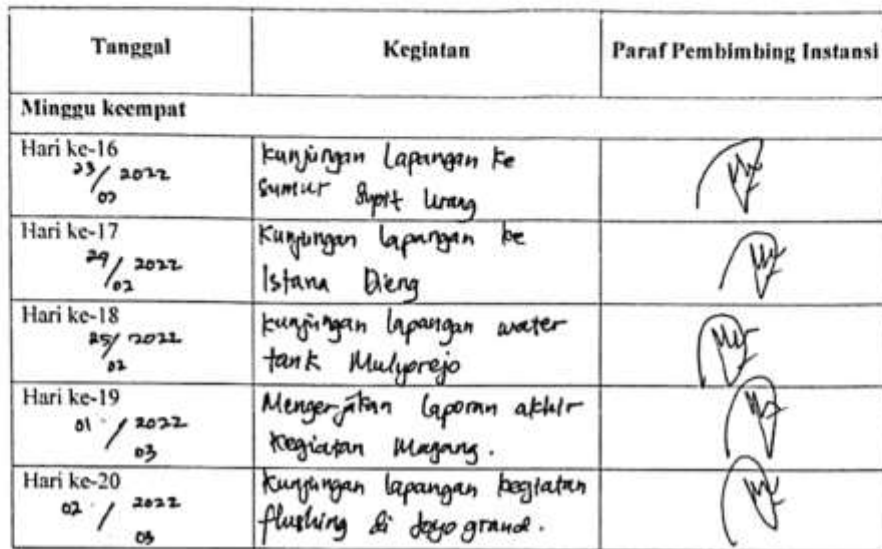 Tanggal Kegiatan Paraf Pembimbing Instansi
Minggu keempat
Hari ke-16
23/02 2022
Kunjungan Lapangan ke
Sumur Supit Urang
Hari ke-17
24/02 2022
Kunjungan lapangan ke
Istana Dieng
Hari ke-18
25/02 2022
Kunjungan lapangan water
tank Mulyorejo
Hari ke-19
01/03 2022
Mengerjakan laporan akhir
Kegiatan Magang.
Hari ke-20
02/03 2022
Kunjungan lapangan kegiatan
flushing di Joyo grand.